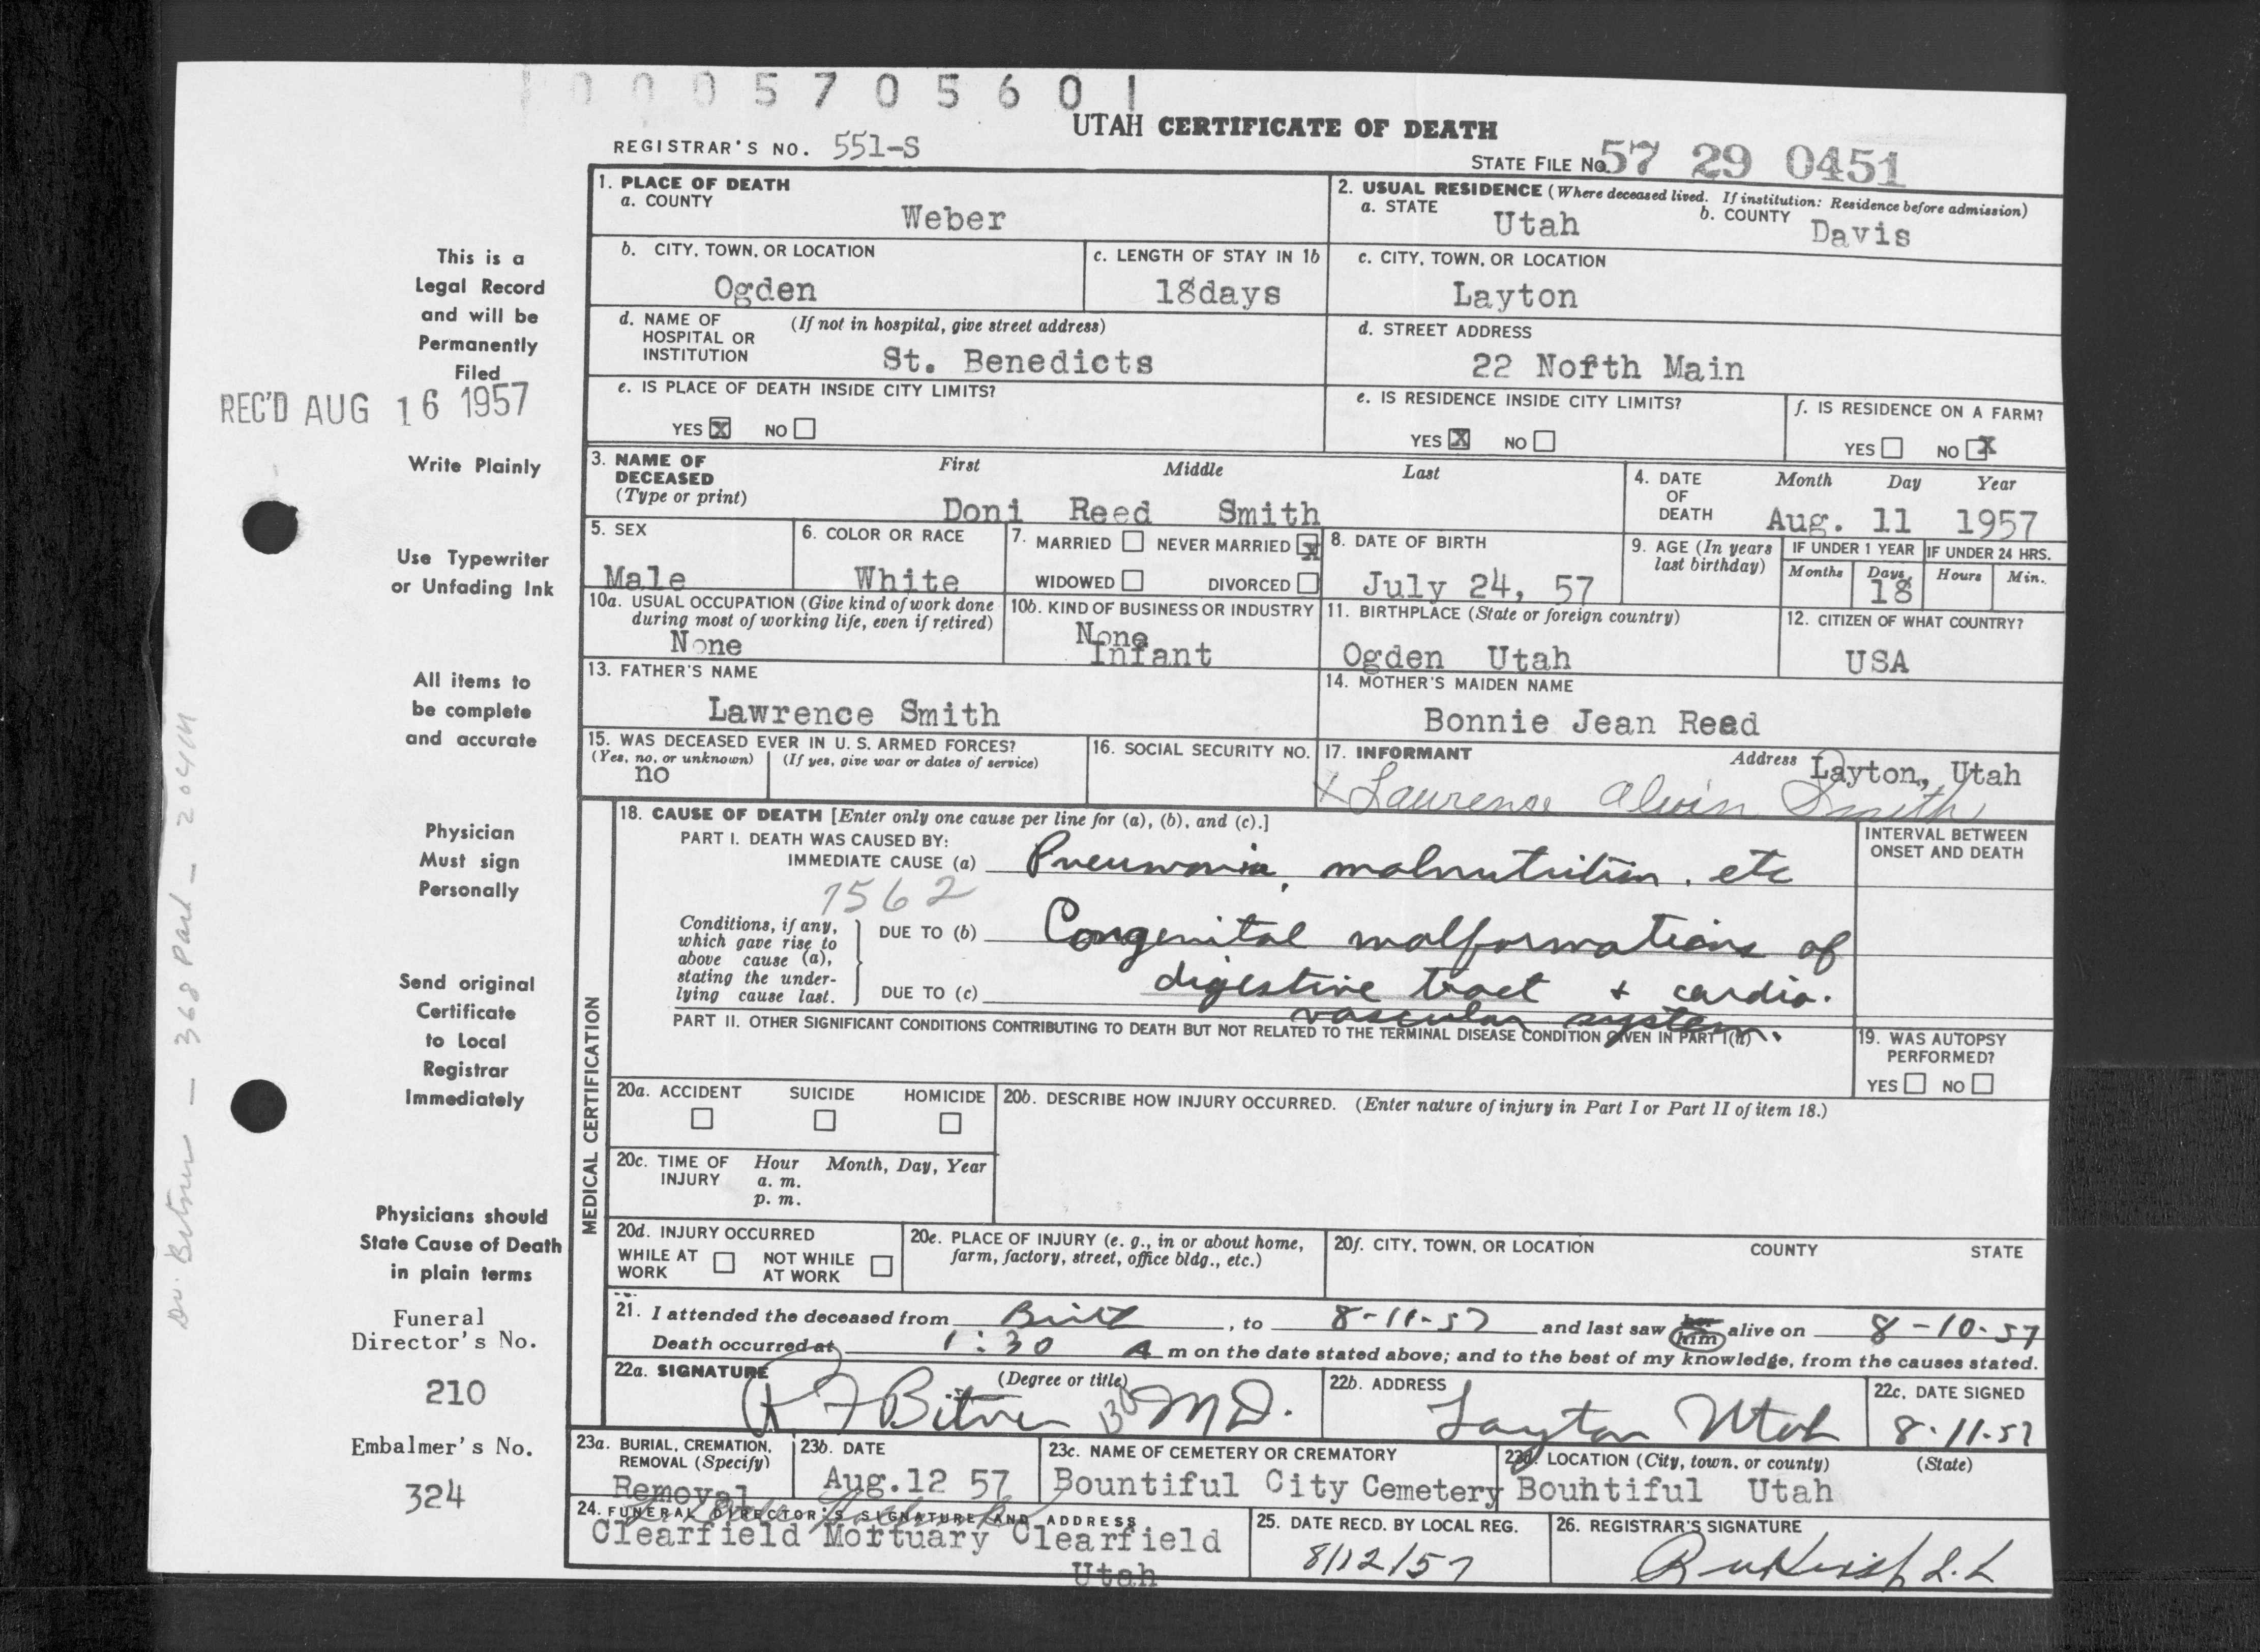 0005705601
UTAH CERTIFICATE OF DEATH
REGISTRAR'S NO. 551-S
STATE FILE NO. 57 29 0451
1. PLACE OF DEATH
a. COUNTY
Weber
2. USUAL RESIDENCE (Where deceased lived. If institution: Residence before admission)
a. STATE Utah b. COUNTY Davis
b. CITY, TOWN, OR LOCATION
Ogden
c. LENGTH OF STAY IN 1b
18days
c. CITY, TOWN, OR LOCATION
Layton
d. NAME OF HOSPITAL OR INSTITUTION (If not in hospital, give street address)
St. Benedicts
d. STREET ADDRESS
22 North Main
e. IS PLACE OF DEATH INSIDE CITY LIMITS?
YES X NO
e. IS RESIDENCE INSIDE CITY LIMITS?
YES X NO
f. IS RESIDENCE ON A FARM?
YES NO X
3. NAME OF DECEASED (Type or print) First Middle Last
Doni Reed Smith
4. DATE OF DEATH Month Day Year
Aug. 11 1957
5. SEX
Male
6. COLOR OR RACE
White
7. MARRIED NEVER MARRIED X
WIDOWED DIVORCED
8. DATE OF BIRTH
July 24, 57
9. AGE (In years last birthday)
IF UNDER 1 YEAR IF UNDER 24 HRS.
Months Days Hours Min.
18
10a. USUAL OCCUPATION (Give kind of work done during most of working life, even if retired)
None
10b. KIND OF BUSINESS OR INDUSTRY
None
Infant
11. BIRTHPLACE (State or foreign country)
Ogden Utah
12. CITIZEN OF WHAT COUNTRY?
USA
13. FATHER'S NAME
Lawrence Smith
14. MOTHER'S MAIDEN NAME
Bonnie Jean Reed
15. WAS DECEASED EVER IN U. S. ARMED FORCES?
(Yes, no, or unknown) (If yes, give war or dates of service)
no
16. SOCIAL SECURITY NO.
17. INFORMANT Address Layton, Utah
x Laurense Alvin Smith
MEDICAL CERTIFICATION
18. CAUSE OF DEATH [Enter only one cause per line for (a), (b), and (c).]
PART I. DEATH WAS CAUSED BY:
IMMEDIATE CAUSE (a) Pneumonia, malnutrition, etc
7562
Conditions, if any, which gave rise to above cause (a), stating the underlying cause last.
DUE TO (b) Congenital malformations of
DUE TO (c) digestive tract + cardio-
vascular system.
INTERVAL BETWEEN ONSET AND DEATH
PART II. OTHER SIGNIFICANT CONDITIONS CONTRIBUTING TO DEATH BUT NOT RELATED TO THE TERMINAL DISEASE CONDITION GIVEN IN PART I(a)
19. WAS AUTOPSY PERFORMED?
YES NO
20a. ACCIDENT SUICIDE HOMICIDE
20b. DESCRIBE HOW INJURY OCCURRED. (Enter nature of injury in Part I or Part II of item 18.)
20c. TIME OF INJURY Hour Month, Day, Year
a. m.
p. m.
20d. INJURY OCCURRED
WHILE AT WORK NOT WHILE AT WORK
20e. PLACE OF INJURY (e. g., in or about home, farm, factory, street, office bldg., etc.)
20f. CITY, TOWN, OR LOCATION COUNTY STATE
21. I attended the deceased from Birth, to 8-11-57 and last saw her him alive on 8-10-57
Death occurred at 1:30 A m on the date stated above; and to the best of my knowledge, from the causes stated.
22a. SIGNATURE (Degree or title)
R F Bitner MD.
22b. ADDRESS
Layton Utah
22c. DATE SIGNED
8-11-57
23a. BURIAL, CREMATION, REMOVAL (Specify)
Removal
23b. DATE
Aug.12 57
23c. NAME OF CEMETERY OR CREMATORY
Bountiful City Cemetery
23d. LOCATION (City, town, or county) (State)
Bouhtiful Utah
24. FUNERAL DIRECTOR'S SIGNATURE AND ADDRESS
Clearfield Mortuary Clearfield
Utah
25. DATE RECD. BY LOCAL REG.
8/12/57
26. REGISTRAR'S SIGNATURE
This is a
Legal Record
and will be
Permanently
Filed
REC'D AUG 16 1957
Write Plainly
Use Typewriter
or Unfading Ink
All items to
be complete
and accurate
Physician
Must sign
Personally
Send original
Certificate
to Local
Registrar
Immediately
Physicians should
State Cause of Death
in plain terms
Funeral
Director's No.
210
Embalmer's No.
324
Dr. Bitner — 368 Park —